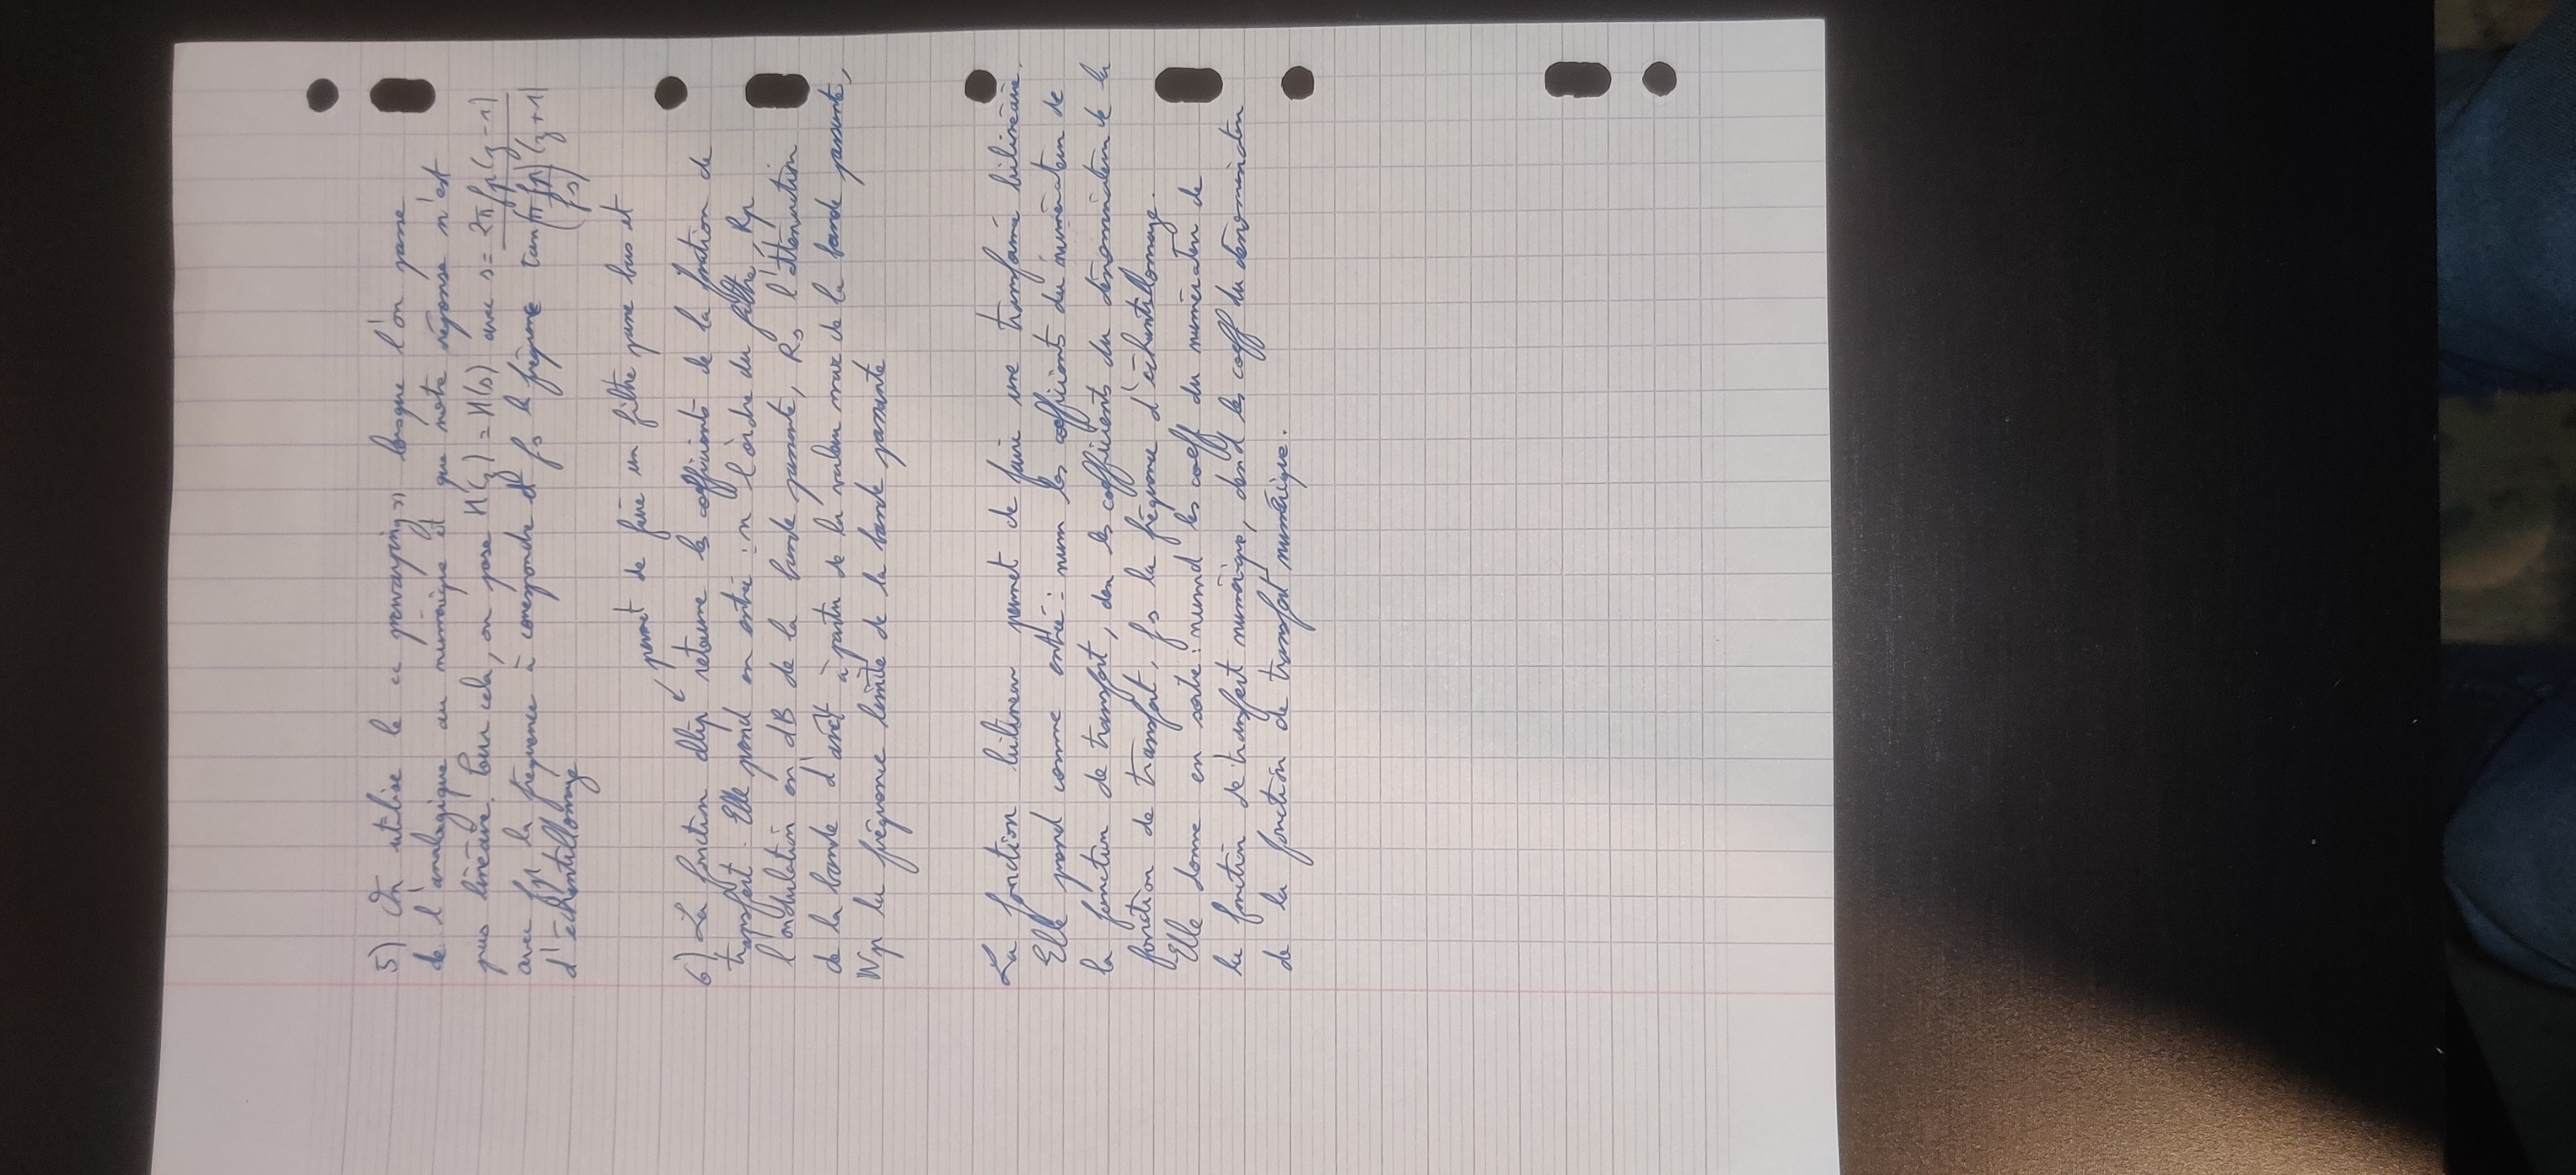 5) On utilise le "prewarping" lorsque l'on passe
de l'analogique au numérique et que notre réponse n'est
pas linéaire. Pour cela, on pose H(z) = H(s) avec s = 2π fp (z-1) / tan(π fp/fs) (z+1)
avec fp la fréquence à correspondre et fs la fréquence
d'échantillonnage
permet de faire un filtre passe bas et
6) La fonction ellip retourne les coefficients de la fonction de
transfert. Elle prend en entrée : n l'ordre du filtre, Rp
l'ondulation en dB de la bande passante, Rs l'atténuation
de la bande d'arrêt à partir de la valeur max de la bande passante,
Wp la fréquence limite de la bande passante
La fonction bilinear permet de faire une transformé bilinéaire.
Elle prend comme entrée : num les coefficients du numérateur de
la fonction de transfert, den les coefficients du dénominateur de la
fonction de transfert, fs la fréquence d'échantillonnage.
Elle donne en sortie : numd les coeff du numérateur de
la fonction de transfert numérique, dend les coeff du dénominateur
de la fonction de transfert numérique.